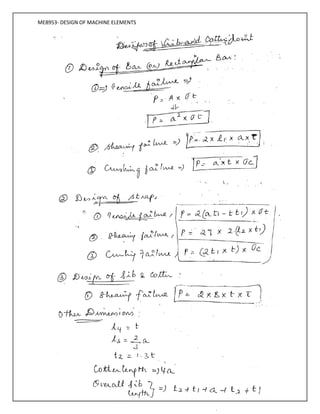 ME8953- DESIGN OF MACHINE ELEMENTS
Design of Gib and Cotter joint
① Design of Bar (or) Rectangular Bar:
①=) Tensile failure =)
P = A x σt
P = a² x σt
② Shearing failure =) P = 2 x l1 x a x τ
③ Crushing failure =) P = a x t x σc
② Design of strap,
① Tensile failure, P = 2(at1 - tt1) x σt
② Shearing failure, P = 2τ x 2(l2 x t1)
③ Crushing Failure, P = (2t1 x t) x σc
③ Design of Gib & Cotter:
① Shearing failure P = 2 x B x t x τ
Other Dimensions:
l4 = t
l3 = 2/3 a
t2 = 1.3t
Cotter length =) 4a
Overall Gib length =) t3 + t1 + a + t3 + t1